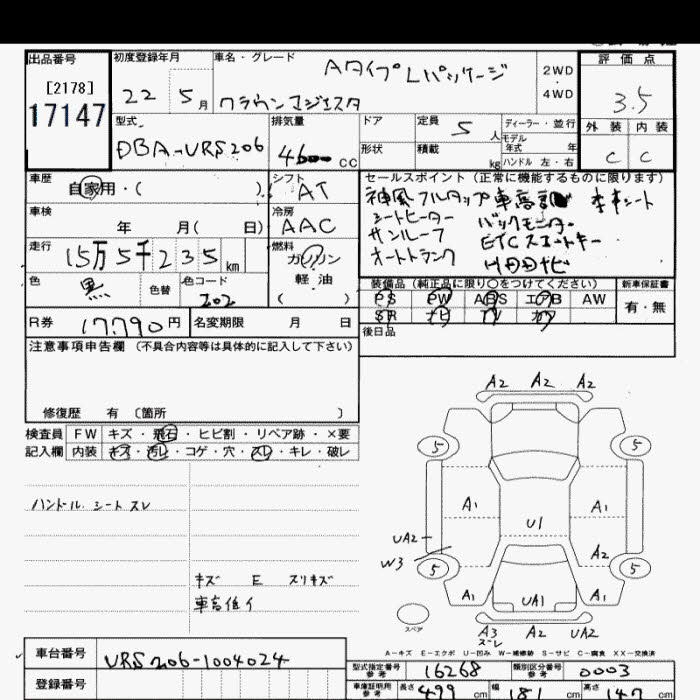 出品番号
[2178]
17147
初度登録年月
22 5月
車名・グレード
Aタイプ Lパッケージ
クラウンマジェスタ
2WD
・
4WD
評価点
3.5
外装 内装
C C
型式
DBA-URS206
排気量
4600cc
ドア
定員 5人
形状
積載 kg
ディーラー・並行
モデル年式 年
ハンドル 左・右
車歴
自家用・( )
シフト
AT
車検
年 月( 日)
冷房
AAC
走行
15万5千235km
燃料
ガソリン
軽油
( )
色
黒
色替
色コード
202
セールスポイント(正常に機能するものに限ります)
神風 フルタップ車高調 本キシート
シートヒーター バックモニター
サンルーフ ETCスマートキー
オートトランク HDDナビ
装備品(純正品に限り○をつけてください)
新車保証書
PS PW ABS エアB AW
SR ナビ TV カワ
有・無
後日品
R券 17,790円
名変期限 月 日
注意事項申告欄(不具合内容等は具体的に記入して下さい)
修復歴 有 〔箇所 〕
検査員記入欄
FW キズ・飛石・ヒビ割・リペア跡・×要
内装 キズ・汚レ・コゲ・穴・スレ・キレ・破レ
ハンドル シート スレ
キズ E スリキズ
車高低イ
A2 A2 A2
5 5
A1 A1
U1
UA2
W3
A2
5 5
A1 UA1 A1
スペア
A3 A2 UA2
ズレ
A-キズ E-エクボ U-凹み W-補修跡 S-サビ C-腐食 XX-交換済
車台番号
URS206-1004024
登録番号
型式指定番号 参考 16268
類別区分番号 参考 0003
車庫証明用 参考 長さ 499cm 幅 181cm 高さ 147cm